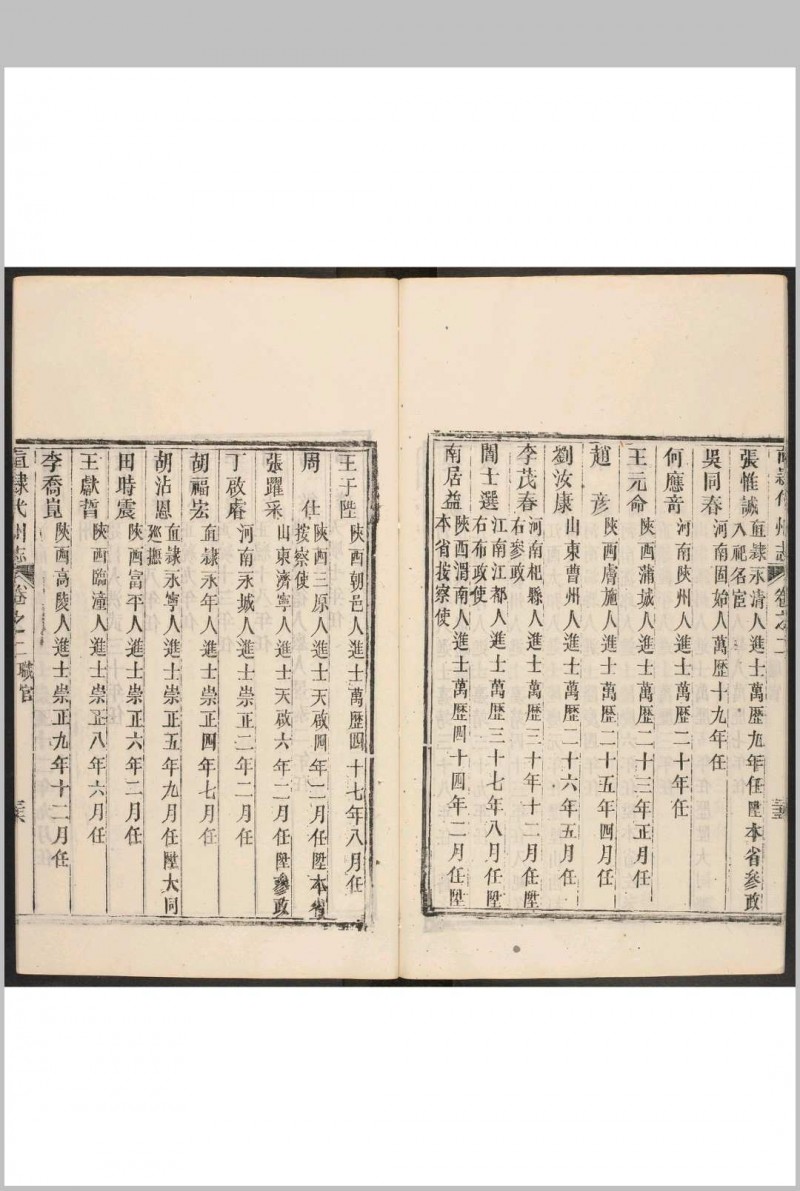 直隸代州志 卷之二
張惟誠 直隸永清人進士萬歷九年任陞本省參政
入祀名宦
吳同春 河南固始人萬歷十九年任
何應奇 河南陝州人進士萬歷二十年任
王元命 陝西蒲城人進士萬歷二十三年正月任
趙彥 陝西膚施人進士萬歷二十五年四月任
劉汝康 山東曹州人進士萬歷二十六年五月任
李茂春 河南杞縣人進士萬歷三十年十二月任陞
右參政
閻士選 江南江都人進士萬歷三十七年八月任陞
右布政使
南居益 陝西渭南人進士萬歷四十四年二月任陞
本省按察使
王于陛 陝西朝邑人進士萬歷四十七年八月任
周仕 陝西三原人進士天啟四年二月任陞本省
按察使
張躍采 山東濟寧人進士天啟六年二月任陞參政
丁啟睿 河南永城人進士崇正二年二月任
胡福宏 直隸永年人進士崇正四年七月任
胡沾恩 直隸永寧人進士崇正五年九月任陞大同
廵撫
田時震 陝西富平人進士崇正六年二月任
王獻哲 陝西臨潼人進士崇正八年六月任
李喬崑 陝西高陵人進士崇正九年十二月任
直隸代州志 卷之二 職官